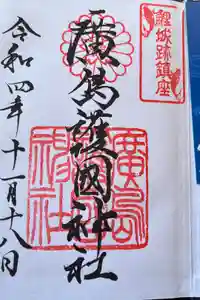 鯉城跡鎮座
廣島護國神社
廣島護國神社
令和四年十一月十八日